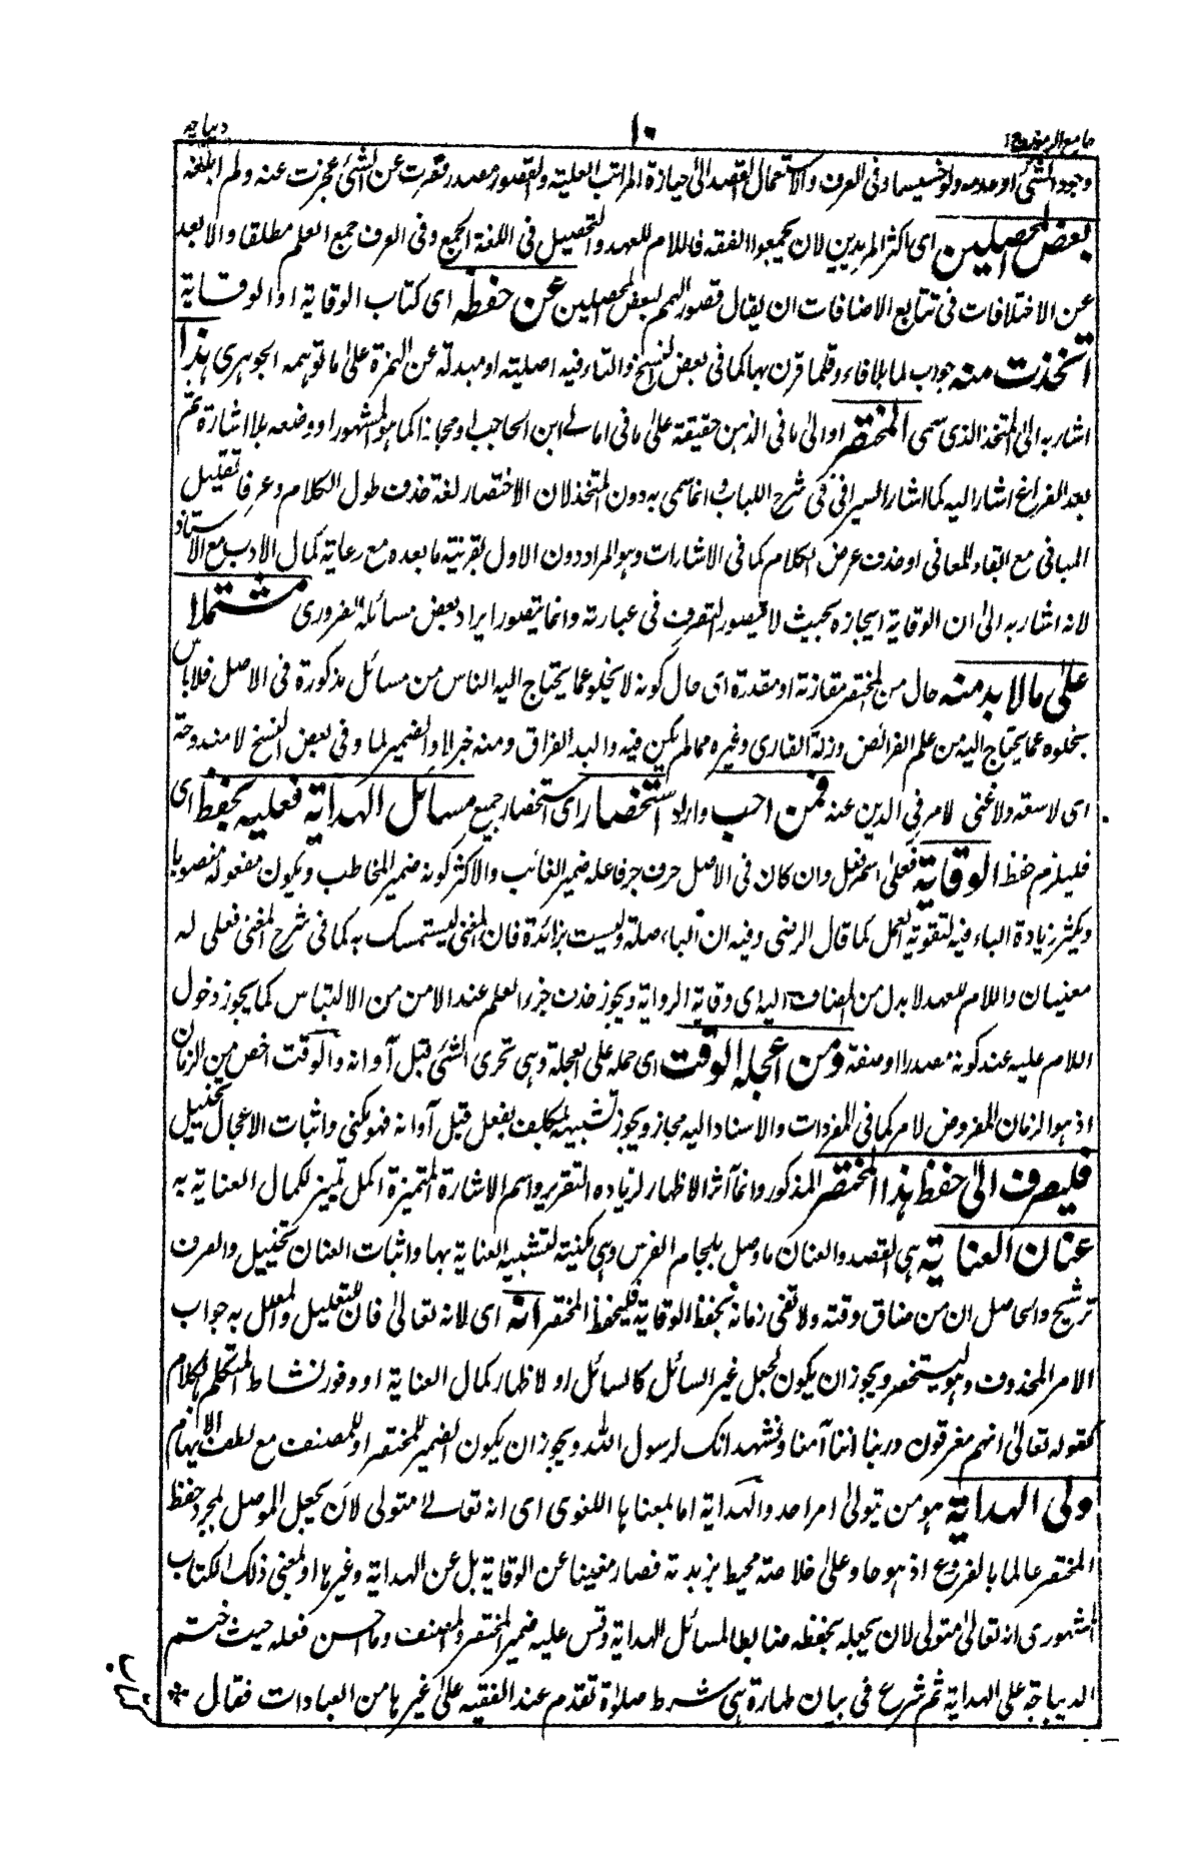 جامع الرموز ج ١ ١٠ ديباجه
وجود الشئ او عدمه ولو خسيسا وفى العرف والاستعمال القصد الى حيازة المراتب العلية والقصور مصدر قصرت عن الشئ عجزت عنه ولم ابلغه
بعض المحصلين اى اكثر المريدين لان يجمعوا الفقه فاللام للعهد والتحصيل فى اللغة الجمع وفى العرف جمع العلم مطلقا والابعد
عن الاختلافات فى تتابع الاضافات ان يقال قصور الهمم لبعض المحصلين عن حفظه اى كتاب الوقاية او الوقاية
اتخذت منه جواب لما بلا فاء وقلما قرن بها كما فى بعض النسخ والتاء فيه اصلية او مبدلة عن الهمزة على ما توهمه الجوهرى هذا
اشار به الى المتخذ الذى سمى المختصر او الى ما فى الذهن حقيقة على ما فى امالى ابن الحاجب او مجازا كما هو المشهور او وضعه بلا اشارة ثم
بعد الفراغ اشار اليه كما اشار السيرافى فى شرح اللباب وانما سمى به دون المتخذ لان الاختصار لغة حذف طول الكلام وعرفا تقليل
المبانى مع ابقاء المعانى او حذف عرض الكلام كما فى الاشارات وهو المراد دون الاول بقرينة ما بعده مع رعاية كمال الادب مع الاستاذ
لانه اشار به الى ان الوقاية ايجازه بحيث لا يتصور التصرف فى عبارته وانما يتصور ايراد بعض مسائله الضرورى مشتملا
على ما لا بد منه حال من المختصر مقارنة او مقدرة اى حال كونه لا يخلو عما يحتاج اليه الناس من مسائل مذكورة فى الاصل فلا باس
بخلوه عما يحتاج اليه من علم الفرائض وزلة القارى وغيره مما لم يكن فيه والبد الفراق ومنه خبر لا والضمير لما وفى بعض النسخ لا مندوحة
اى لا سعة ولا غنى لامر فى الدين عنه فمن احب واراد استحضار اى استحضار جميع مسائل الهداية فعليه بحفظ اى
فليلزم حفظ الوقاية فعلى اسم فعل وان كان فى الاصل حرف جر فاعله ضمير الغائب والاكثر كونه ضمير المخاطب ويكون مفعوله منصوبا
ويكثر زيادة الباء فيه لتقوية العمل كما قال الرضى وفيه ان الباء صلة وليست بزائدة فان المعنى ليستمسك به كما فى شرح المغنى فعلى له
معنيان واللام للعهد لا بدل من المضاف اليه اى وقاية الرواية ويجوز حذف جزء العلم عند الامن من الالتباس كما يجوز دخول
اللام عليه عند كونه مصدرا او صفة ومن اعجله الوقت اى حمله على العجلة وهى تحرى الشئ قبل آوانه والوقت اخص من الزمان
اذ هو الزمان المفروض لامر كما فى المفردات والاسناد اليه مجاز ويجوز تشبيهه بمكلف بفعل قبل آوانه فهو مكنى واثبات الاعجال تخييل
فليصرف الى حفظ هذا المختصر المذكور وانما آثر الاظهار لزيادة التقرير واسم الاشارة المتميزة اكمل تمييز لكمال العناية به
عنان العناية هى القصد والعنان ما وصل بلجام الفرس وهى مكنية لتشبيه العناية بها واثبات العنان تخييل والصرف
ترشيح والحاصل ان من ضاق وقته ولا تفى زمانه بحفظ الوقاية فليحفظ المختصر انه اى لانه تعالى فان للتعليل والمعلل به جواب
الامر المحذوف وهو ليستحضر ويجوز ان يكون لجعل غير السائل كالسائل او لاظهار كمال العناية او وفور نشاط المتكلم بالكلام
كقوله تعالى انهم مغرقون وربنا اننا آمنا ونشهد انك لرسول الله ويجوز ان يكون الضمير للمختصر او للمصنف مع لطف الايهام
ولى الهداية هو من يتولى امر احد والهداية اما بمعناها اللغوى اى انه تعالى متولى لان يجعل الموصل لمجرد حفظ
المختصر عالما بالفروع اذ هو حاو على خلاصة محيط بزبدته فصار مغينا عن الوقاية بل عن الهداية وغيرها او لمعنى ذلك الكتاب
المشهور اى انه تعالى متولى لان يجعله بحفظه ضابطا لمسائل الهداية وقس عليه ضمير المختصر والمصنف وما احسن فعله حيث ختم
الديباجة على الهداية ثم شرع فى بيان طهارة هى شرط صلوة تقدم عند الفقيه على غيرها من العبادات فقال *